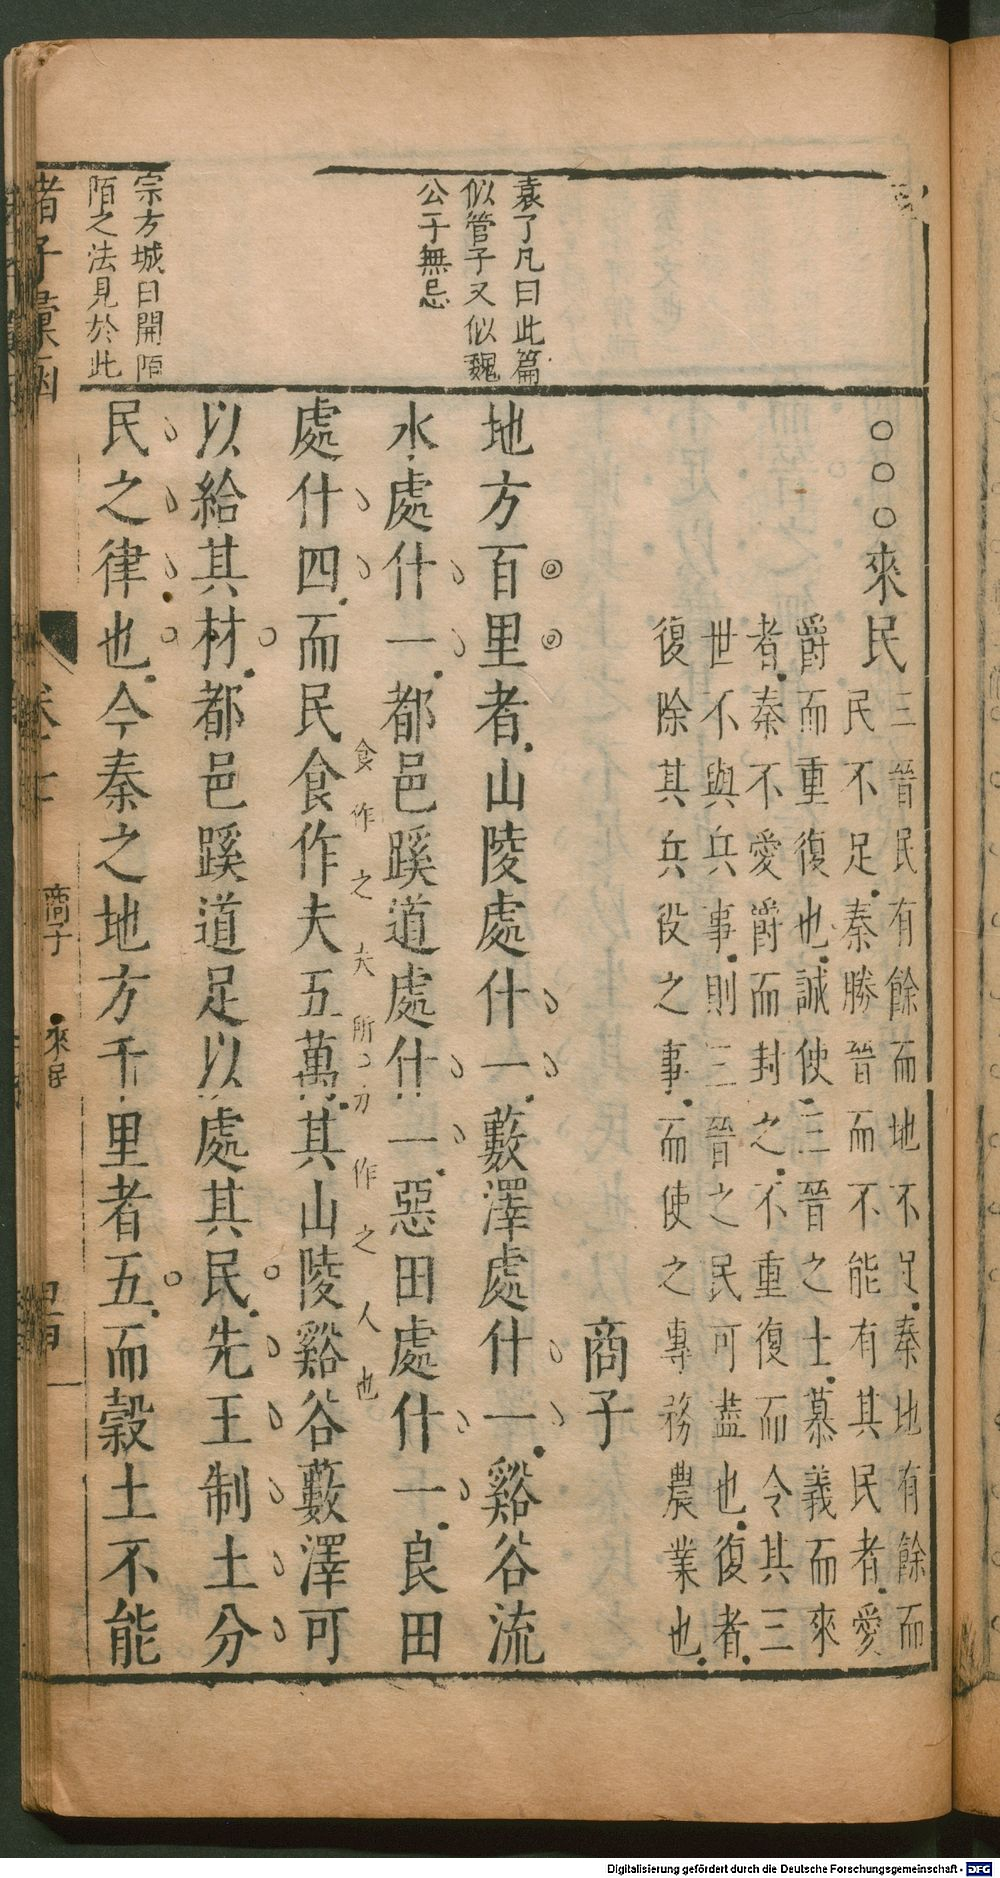 來民
三晉民有餘而地不足秦地有餘而
民不足秦勝晉而不能有其民者愛
爵而重復也誠使三晉之士慕義而來
者秦不愛爵而封之不重復而令其三
世不與兵事則三晉之民可盡也復者
復除其兵役之事而使之專務農業也
商子
地方百里者山陵處什一藪澤處什一谿谷流
水處什一都邑蹊道處什一惡田處什一良田
處什四而民食作夫五萬其山陵谿谷藪澤可
食作之夫所口力作之人也
以給其材都邑蹊道足以處其民先王制土分
民之律也今秦之地方千里者五而穀土不能
袁了凡曰此篇
似管子又似魏
公子無忌
宗方城曰開陌
陌之法見於此
諸子彙函
商子
來民
一
Digitalisierung gefördert durch die Deutsche Forschungsgemeinschaft - DFG